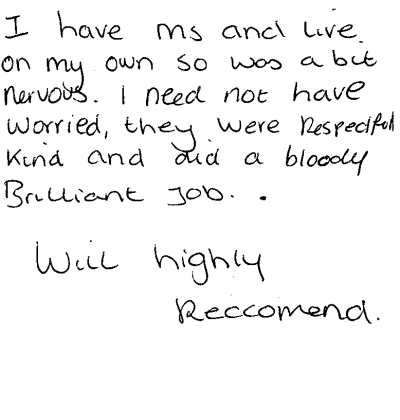 I have ms and live
on my own so was a bit
nervous. I need not have
worried, they were Respectful
kind and did a bloody
Brilliant Job. .
Will highly
Reccomend.